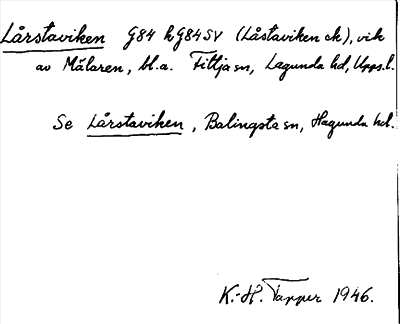 Lårstaviken G84 k G84SV (Låstaviken ek), vik
av Mälaren, bl.a. Fittja sn, Lagunda hd, Upps. l.
Se Lårstaviken, Balingsta sn, Hagunda hd.
K.-H. Tapper 1946.